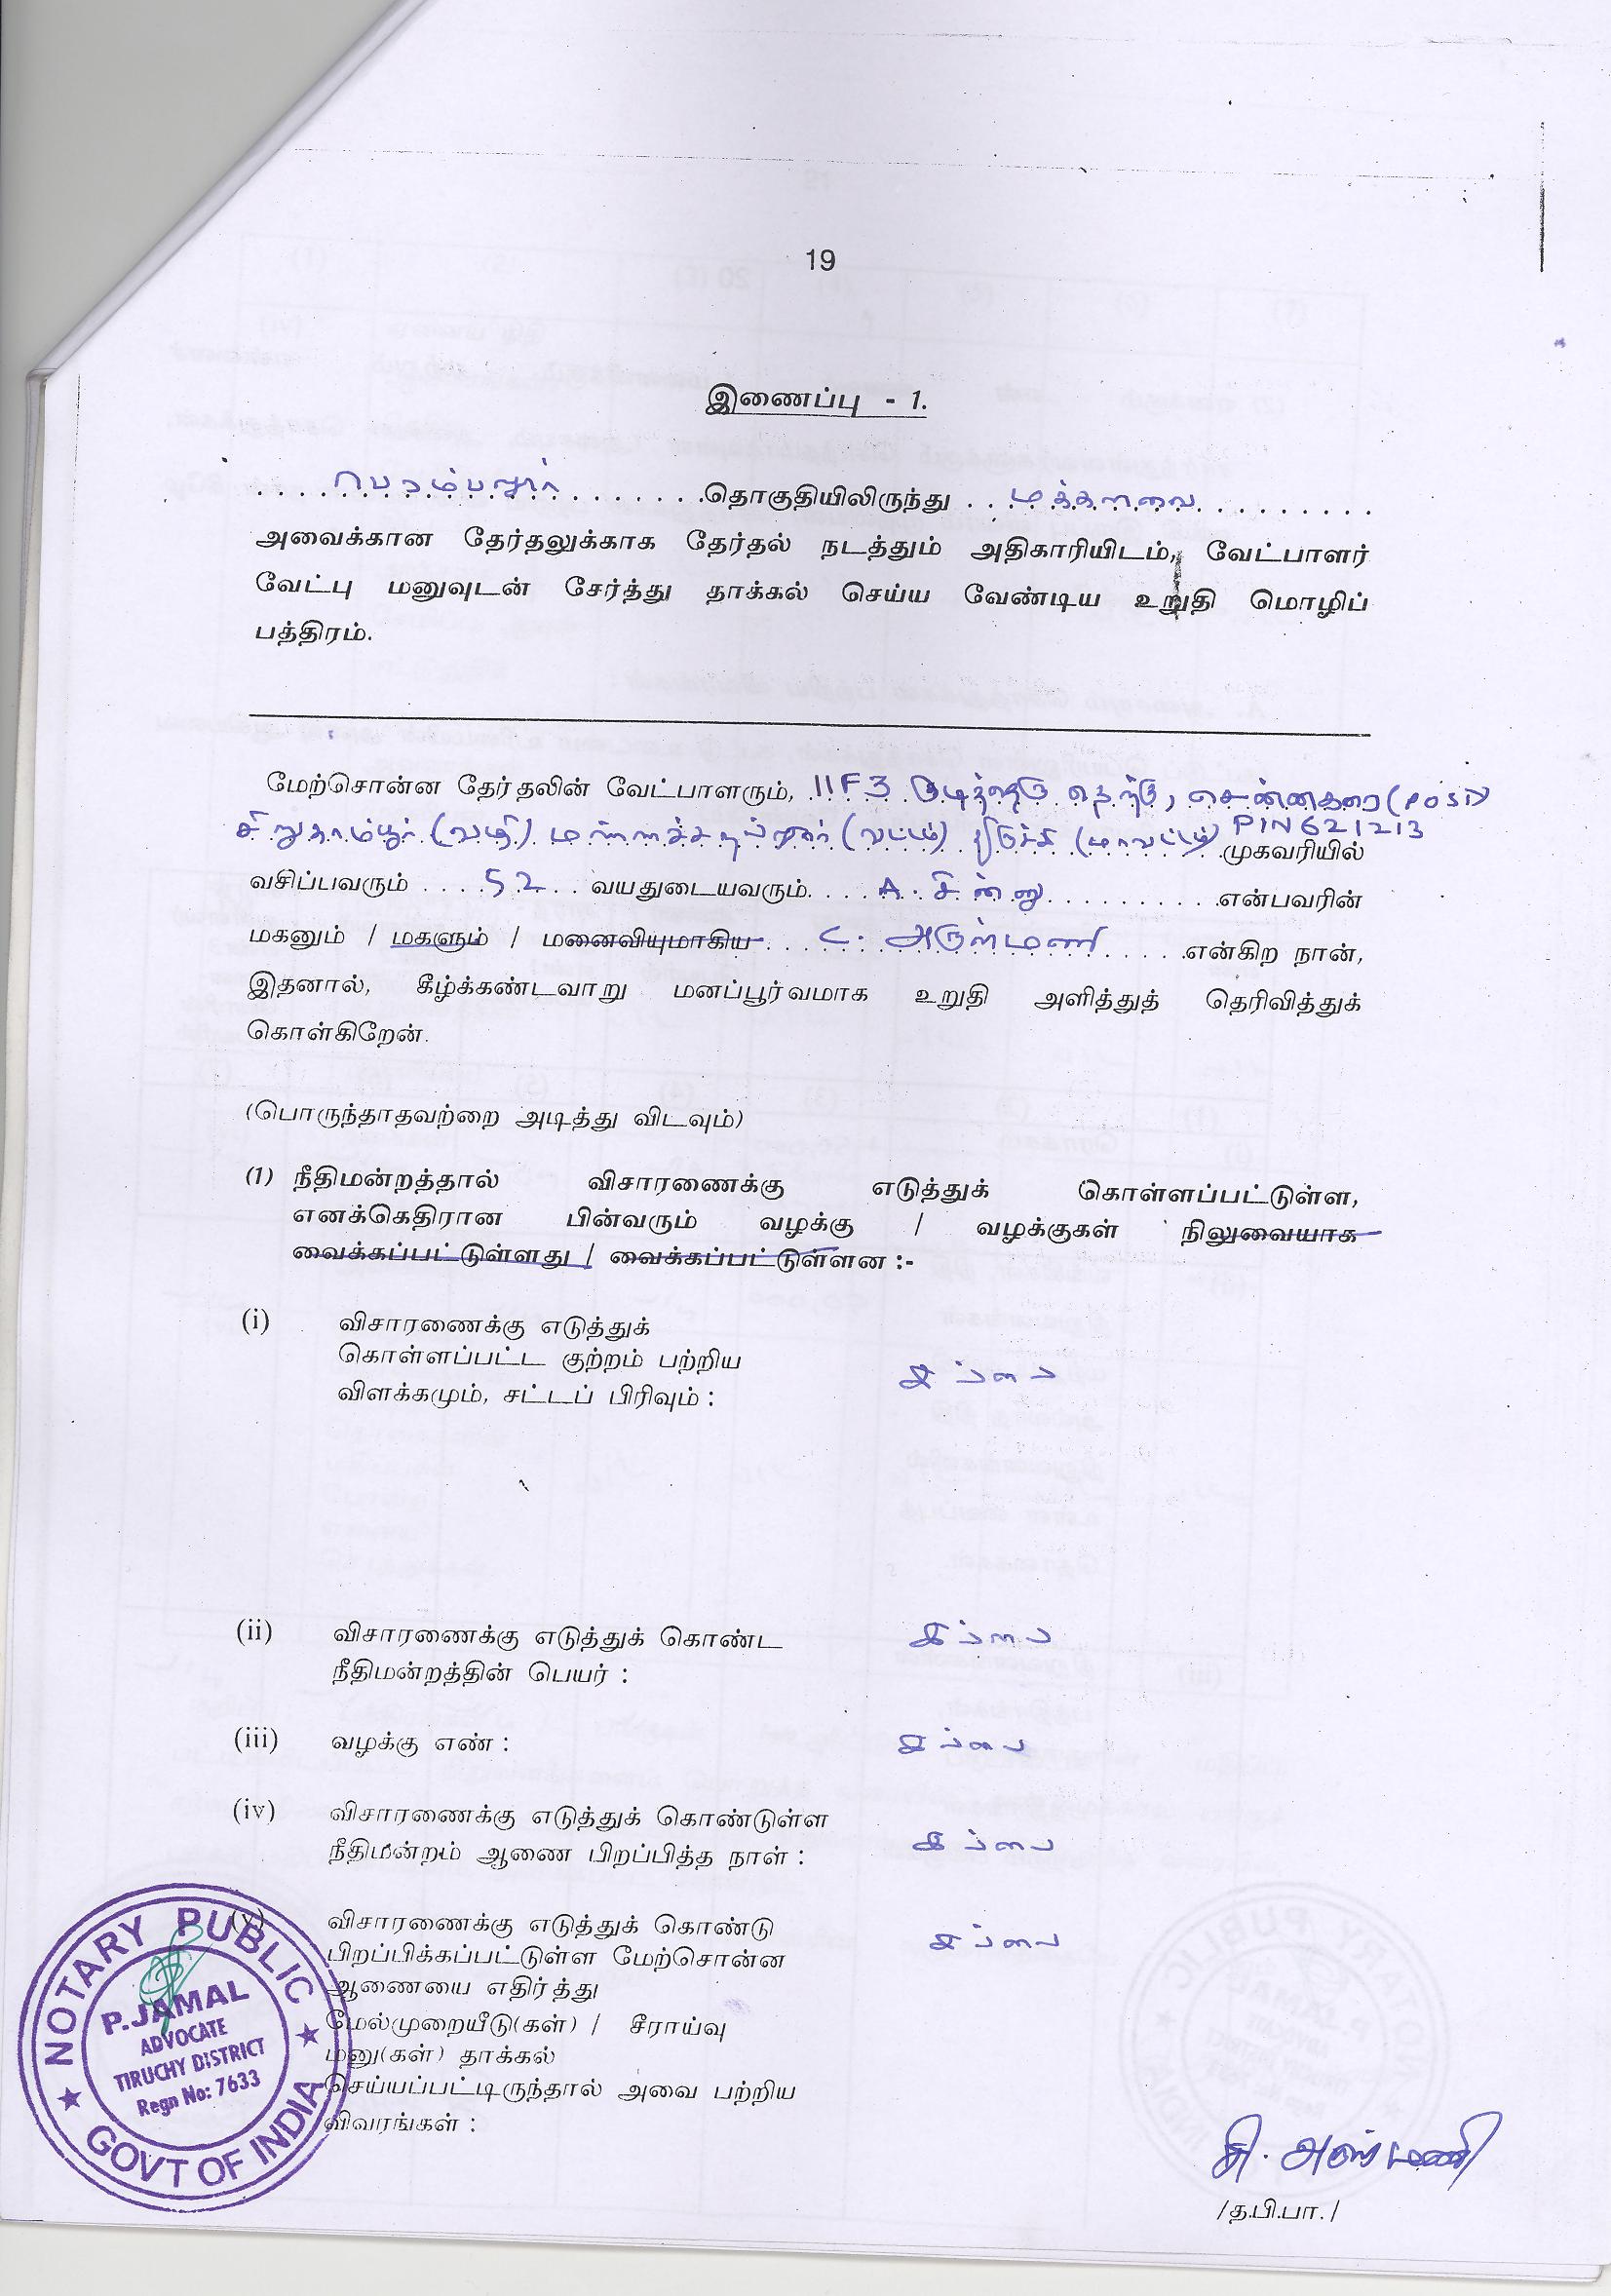 19
இணைப்பு - 1.
பெரம்பலூர் தொகுதியிலிருந்து மக்களவை
அவைக்கான தேர்தலுக்காக தேர்தல் நடத்தும் அதிகாரியிடம், வேட்பாளர்
வேட்பு மனுவுடன் சேர்த்து தாக்கல் செய்ய வேண்டிய உறுதி மொழிப்
பத்திரம்.
மேற்சொன்ன தேர்தலின் வேட்பாளரும், 11F3 குடித்தெரு தெற்கு, சென்னகரை (POST)
சிறுகாம்பூர் (வழி) மண்ணச்சநல்லூர் (வட்டம்) திருச்சி (மாவட்டம்) PIN 621213 முகவரியில்
வசிப்பவரும் 52 வயதுடையவரும் A. சின்னு என்பவரின்
மகனும் / மகளும் / மனைவியுமாகிய C. அருள்மணி என்கிற நான்,
இதனால், கீழ்க்கண்டவாறு மனப்பூர்வமாக உறுதி அளித்துத் தெரிவித்துக்
கொள்கிறேன்.
(பொருந்தாதவற்றை அடித்து விடவும்)
(1) நீதிமன்றத்தால் விசாரணைக்கு எடுத்துக் கொள்ளப்பட்டுள்ள,
எனக்கெதிரான பின்வரும் வழக்கு / வழக்குகள் நிலுவையாக
வைக்கப்பட்டுள்ளது / வைக்கப்பட்டுள்ளன :-
(i) விசாரணைக்கு எடுத்துக்
கொள்ளப்பட்ட குற்றம் பற்றிய இல்லை
விளக்கமும், சட்டப் பிரிவும் :
(ii) விசாரணைக்கு எடுத்துக் கொண்ட இல்லை
நீதிமன்றத்தின் பெயர் :
(iii) வழக்கு எண் : இல்லை
(iv) விசாரணைக்கு எடுத்துக் கொண்டுள்ள
நீதிமன்றம் ஆணை பிறப்பித்த நாள் : இல்லை
(v) விசாரணைக்கு எடுத்துக் கொண்டு இல்லை
பிறப்பிக்கப்பட்டுள்ள மேற்சொன்ன
ஆணையை எதிர்த்து
மேல்முறையீடு(கள்) / சீராய்வு
மனு(கள்) தாக்கல்
செய்யப்பட்டிருந்தால் அவை பற்றிய
விவரங்கள் :
NOTARY PUBLIC
P.JAMAL
ADVOCATE
TIRUCHY DISTRICT
Regn No: 7633
GOVT OF INDIA
சி. அருள்மணி
/த.பி.பா./